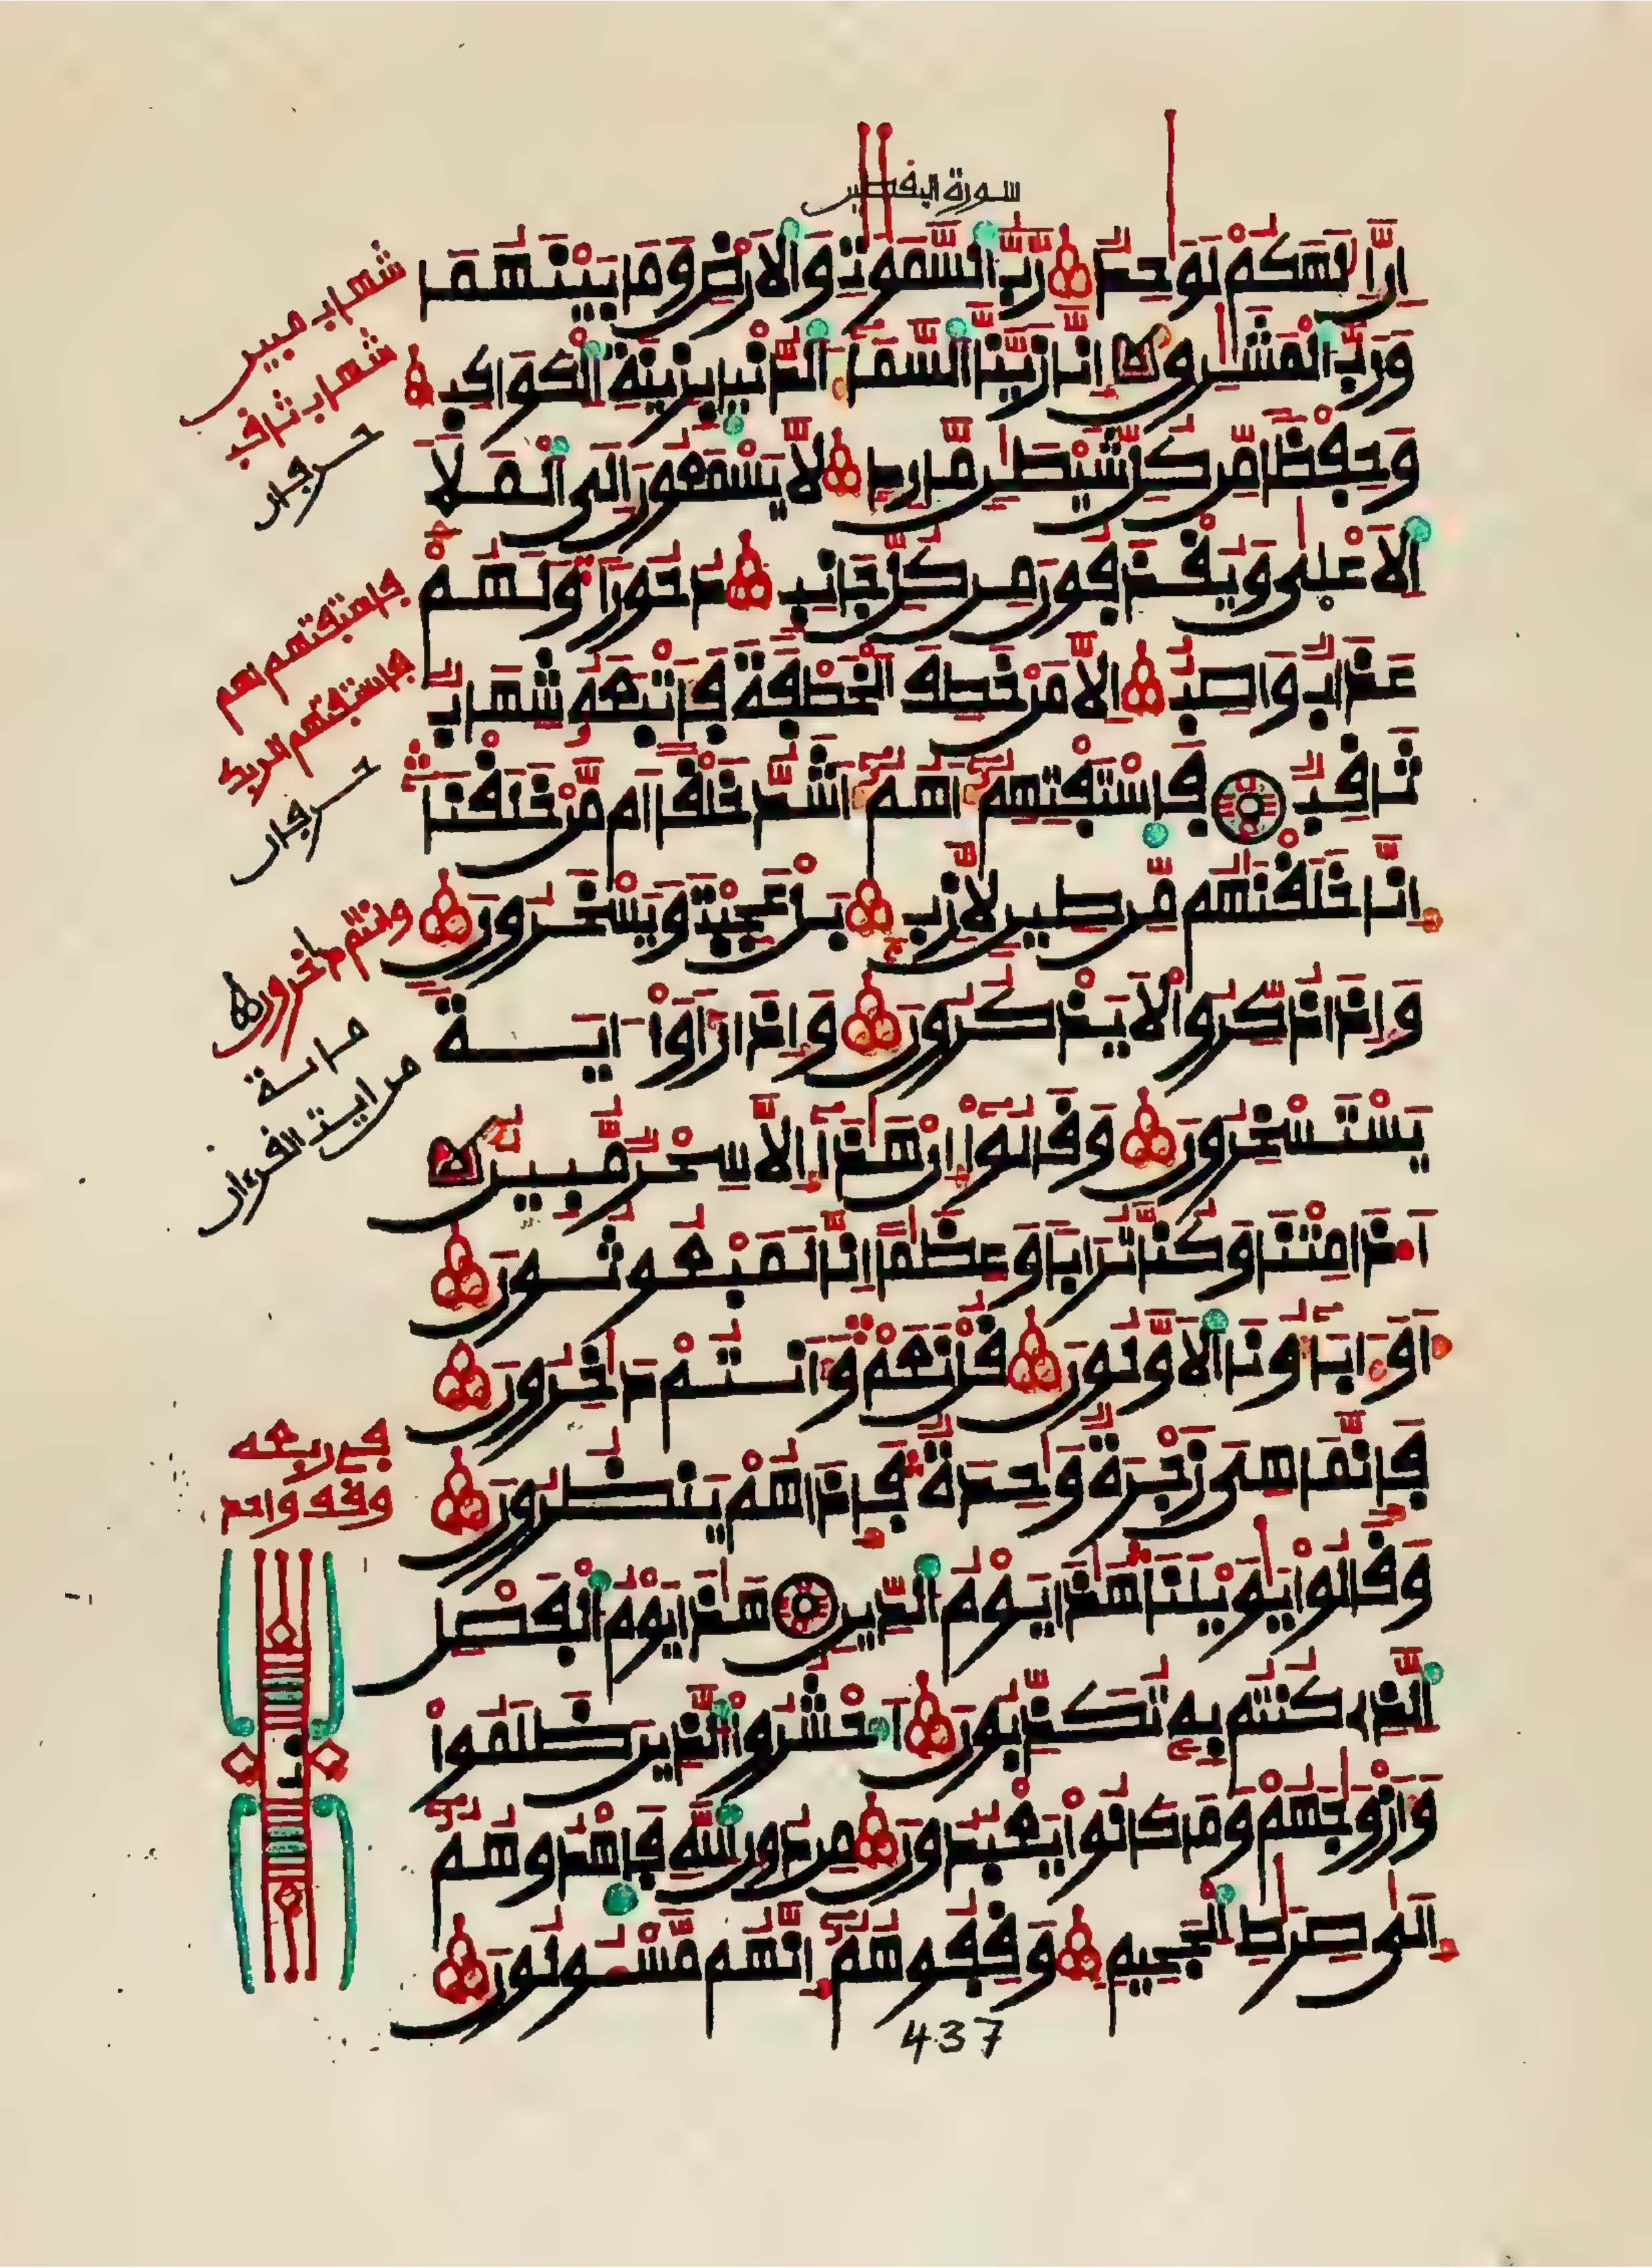 سورة اليقطين
إِنَّ إِلَٰهَكُمْ لَوَٰحِدٌ رَّبُّ السَّمَٰوَٰتِ وَالَارْضِ وَمَا بَيْنَهُمَا
وَرَبُّ الْمَشَٰرِقِ إِنَّا زَيَّنَّا السَّمَآءَ الدُّنْيَا بِزِينَةِ الْكَوَاكِبِ
وَحِفْظًا مِّن كُلِّ شَيْطَٰنٍ مَّارِدٍ لَّا يَسْمَعُونَ إِلَى الْمَلَإِ
الَاعْلَىٰ وَيُقْذَفُونَ مِن كُلِّ جَانِبٍ دُحُورًا وَلَهُمْ
عَذَابٌ وَاصِبٌ اِلَّا مَنْ خَطِفَ الْخَطْفَةَ فَأَتْبَعَهُ شِهَابٌ
ثَاقِبٌ فَاسْتَفْتِهِمُ أَهُمُ أَشَدُّ خَلْقًا اَم مَّنْ خَلَقْنَا
إِنَّا خَلَقْنَٰهُم مِّن طِينٍ لَّازِبٍ بَلْ عَجِبْتَ وَيَسْخَرُونَ
وَإِذَا ذُكِّرُوا لَا يَذْكُرُونَ وَإِذَا رَأَوَا ايَةً
يَسْتَسْخِرُونَ وَقَالُوا إِنْ هَٰذَا إِلَّا سِحْرٌ مُّبِينٌ
أَ.ذَا مِتْنَا وَكُنَّا تُرَابًا وَعِظَٰمًا إِنَّا لَمَبْعُوثُونَ
أَوَ ابَآؤُنَا الَاوَّلُونَ قُلْ نَعَمْ وَأَنتُمْ دَٰخِرُونَ
فَإِنَّمَا هِيَ زَجْرَةٌ وَٰحِدَةٌ فَإِذَا هُمْ يَنظُرُونَ
وَقَالُوا يَٰوَيْلَنَا هَٰذَا يَوْمُ الدِّينِ هَٰذَا يَوْمُ الْفَصْلِ
الَّذِي كُنتُم بِهِ تُكَذِّبُونَ احْشُرُوا الَّذِينَ ظَلَمُوا
وَأَزْوَٰجَهُمْ وَمَا كَانُوا يَعْبُدُونَ مِن دُونِ اللَّهِ فَاهْدُوهُمُ
إِلَىٰ صِرَٰطِ الْجَحِيمِ وَقِفُوهُمُ إِنَّهُم مَّسْـُٔولُونَ
437
شهاب مبين
شهاب ثاقب
حرفان
فاستفتهم أهم
فاستفتهم ألربك
حرفان
وأنتم داخرون
من ايت القرءان
في ربعه
وقف واحد